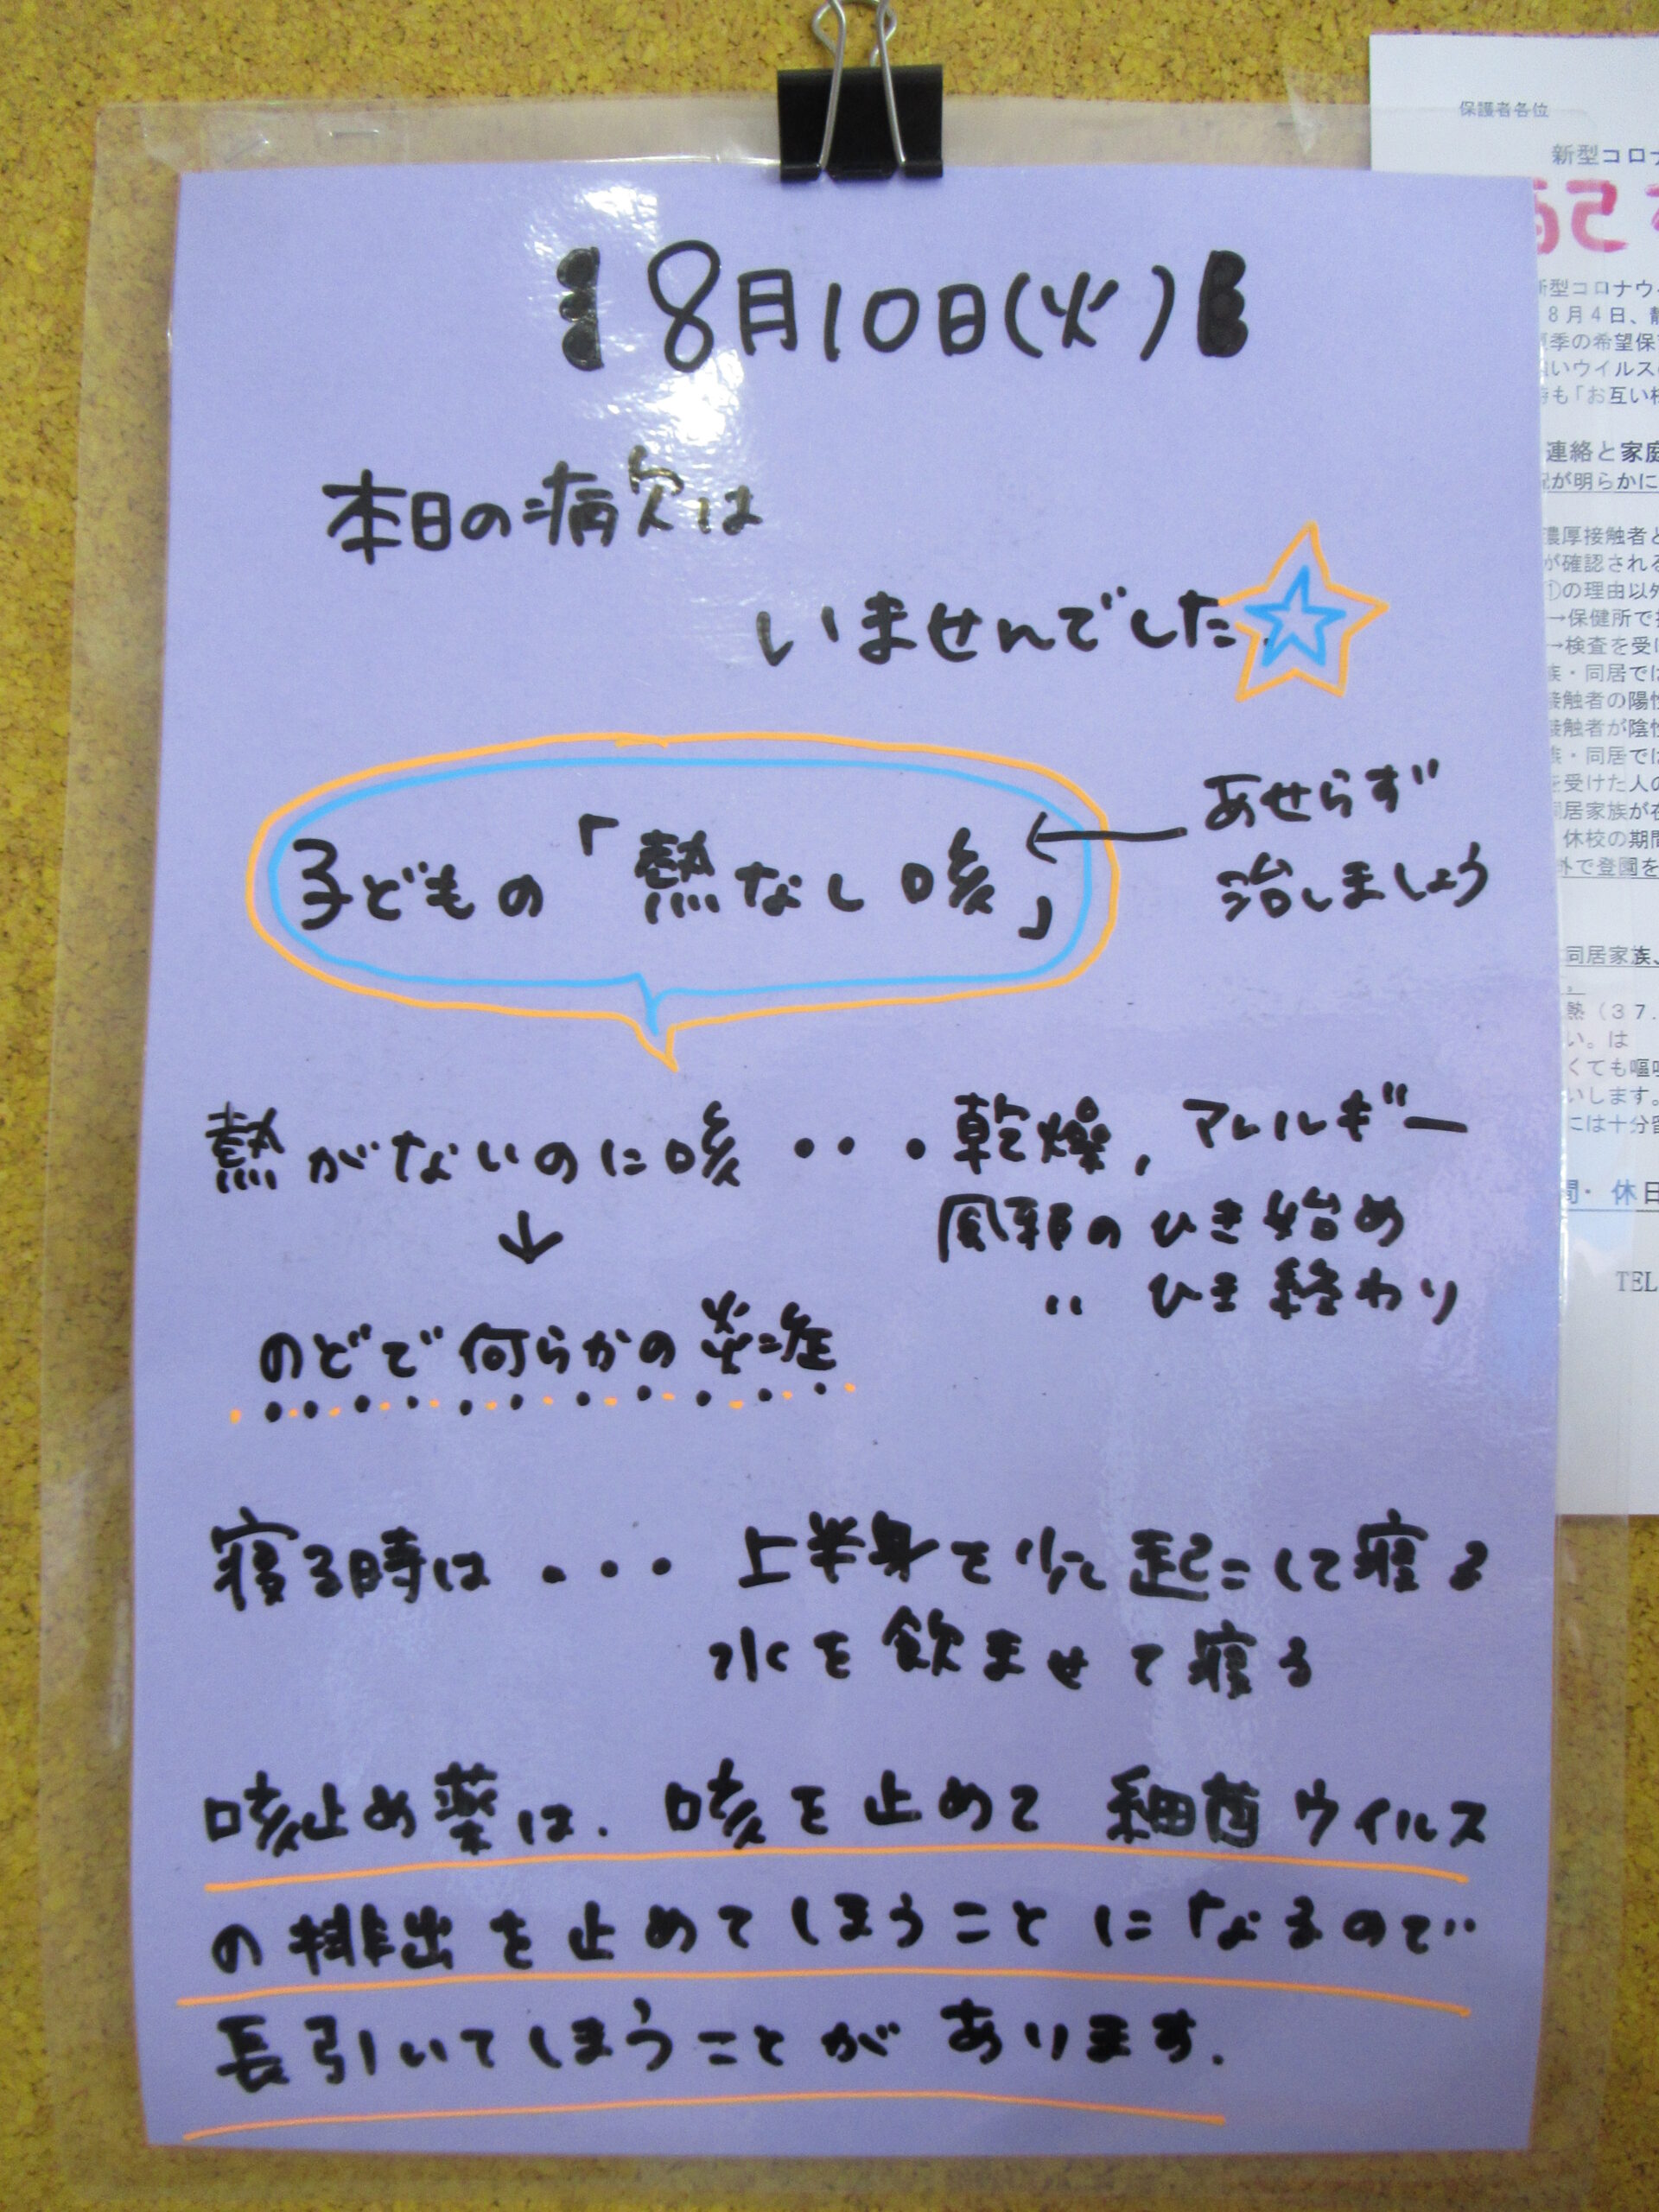 8月10日(火)
本日の病欠は
いませんでした
子どもの「熱なし咳」
あせらず
治しましょう
熱がないのに咳・・・乾燥,アレルギー
風邪のひき始め
〃 ひき終わり
↓
のどで何らかの炎症
寝る時は・・・上半身を少し起こして寝る
水を飲ませて寝る
咳止め薬は、咳を止めて細菌ウイルス
の排出を止めてしまうことになるので
長引いてしまうことがあります.
保護者各位
新型コロナ
新型コロナウ
8月4日、
季の希望保
いウイルス
も「お互い
連絡と家庭
が明らかに
濃厚接触者と
が確認される
①の理由以外
→保健所で
→検査を受け
族・同居では
接触者の陽性
接触者が陰性
族・同居では
を受けた人の
同居家族が
休校の期間
外で登園を
同居家族、
熱(37.
い。は
くても嘔吐
いします。
には十分留
間・休日
TEL